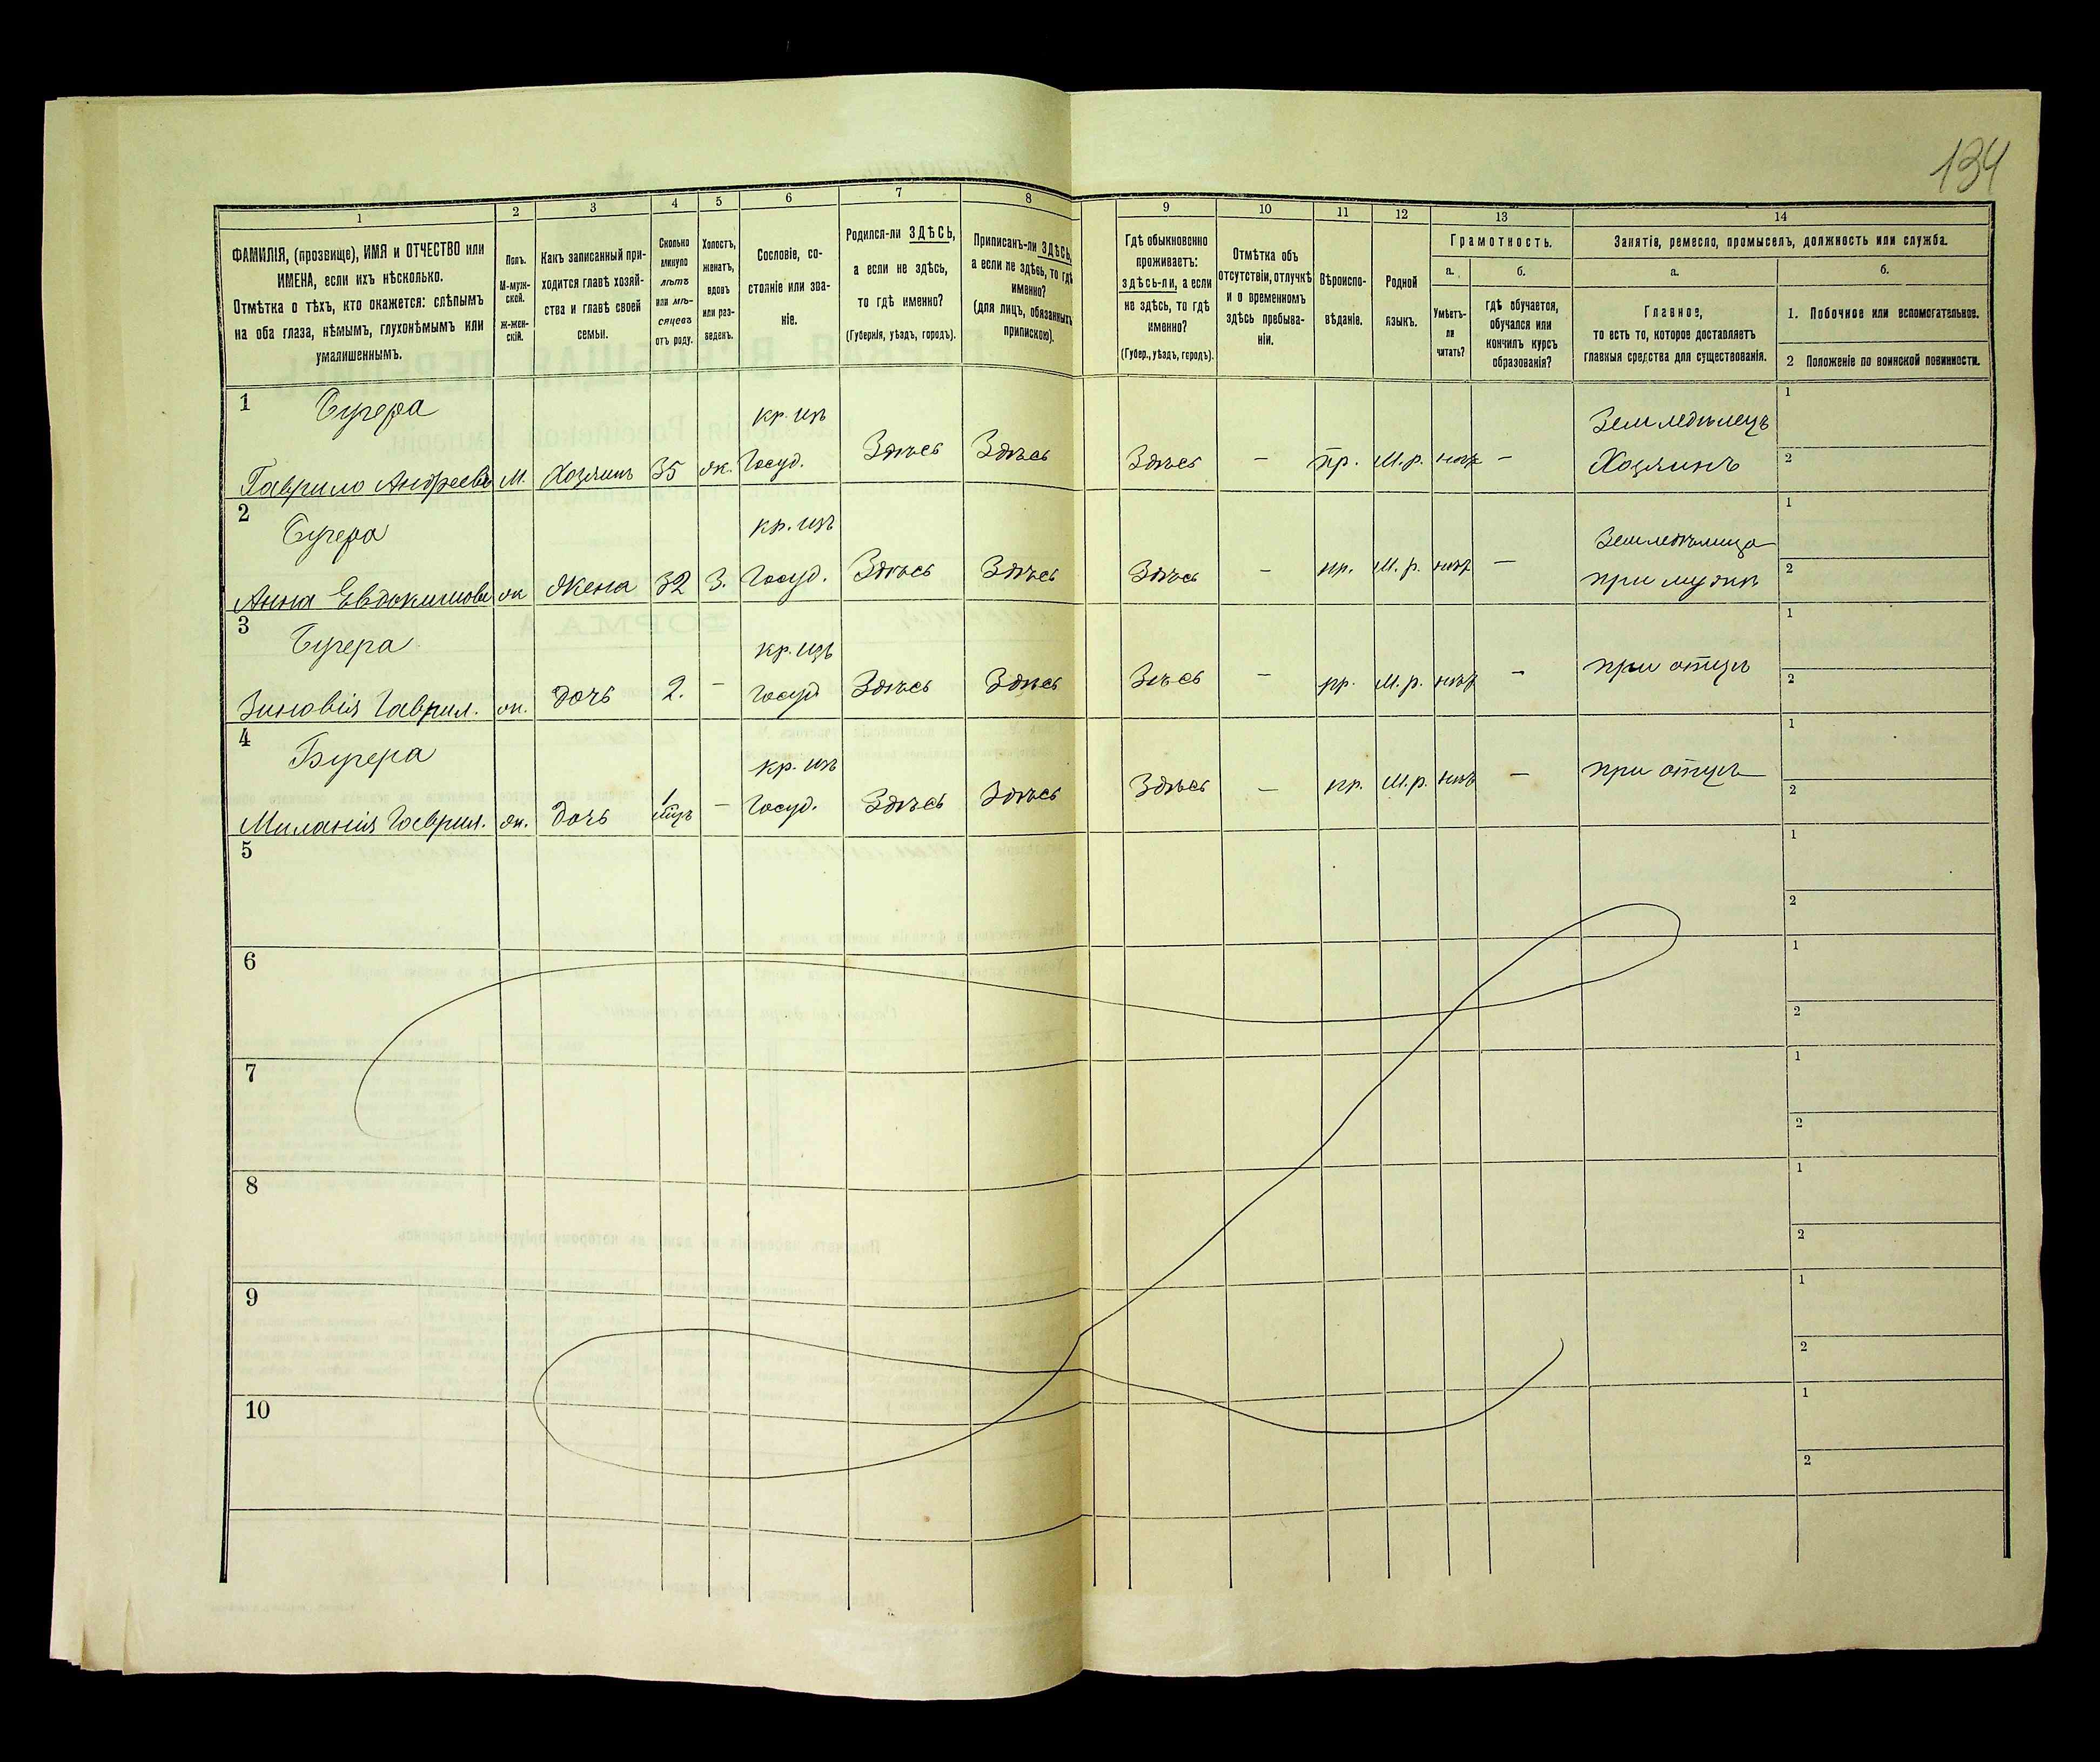 134
1 2 3 4 5 6 7 8 9 10 11 12 13 14
ФАМИЛІЯ, (прозвище), ИМЯ и ОТЧЕСТВО или
ИМЕНА, если ихъ нѣсколько.
Отмѣтка о тѣхъ, кто окажется: слѣпымъ
на оба глаза, нѣмымъ, глухонѣмымъ или
умалишеннымъ.
Полъ.
М-муж-
ской.
ж-жен-
скій.
Какъ записанный при-
ходится главѣ хозяй-
ства и главѣ своей
семьи.
Сколько
минуло
лѣтъ
или мѣ-
сяцевъ
отъ роду.
Холостъ,
женатъ,
вдовъ
или раз-
веденъ.
Сословіе, со-
стояніе или зва-
ніе.
Родился-ли ЗДѢСЬ,
а если не здѣсь,
то гдѣ именно?
(Губернія, уѣздъ, городъ).
Приписанъ-ли ЗДѢСЬ,
а если не здѣсь, то гдѣ
именно?
(для лицъ, обязанныхъ
припискою).
Гдѣ обыкновенно
проживаетъ:
здѣсь-ли, а если
не здѣсь, то гдѣ
именно?
(Губер., уѣздъ, городъ).
Отмѣтка объ
отсутствіи, отлучкѣ
и о временномъ
здѣсь пребыва-
ніи.
Вѣроиспо-
вѣданіе.
Родной
языкъ.
Грамотность.
а.
Умѣетъ-
ли
читать?
б.
гдѣ обучается,
обучался или
кончилъ курсъ
образованія?
Занятіе, ремесло, промыселъ, должность или служба.
а.
Главное,
то есть то, которое доставляетъ
главныя средства для существованія.
б.
1. Побочное или вспомогательное.
2 Положеніе по воинской повинности.
1 Бугера кр. изъ Земледѣлецъ 1
Гаврило Андреевъ М. Хозяинъ 35 ж. Госуд. Здѣсь Здѣсь Здѣсь — пр. М.р. нѣтъ — Хозяинъ 2
2 Бугера кр. изъ Земледѣлица 1
Анна Евдокимова ж Жена 32 З. Госуд. Здѣсь Здѣсь Здѣсь — пр. М.р. нѣтъ — при мужѣ 2
3 Бугера кр. изъ 1
Зиновія Гаврил. ж. дочь 2. — Госуд Здѣсь Здѣсь Зѣсь — пр. М.р. нѣтъ — при отцѣ 2
4 Бугера кр. изъ 1
Миланія Гаврил. ж. дочь 1 — Госуд. Здѣсь Здѣсь Здѣсь — пр. М.р. нѣтъ — при отцѣ 2
5 1
2
6 1
2
7 1
2
8 1
2
9 1
2
10 1
2